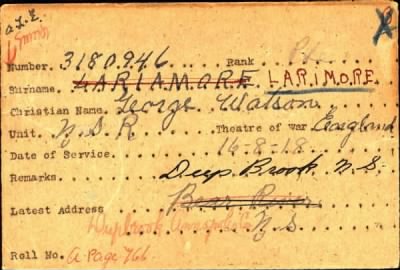 Number. 3180946 Rank Pte
Surname. LARIAMORE LARIMORE
Christian Name. George Watson
Unit. N.S.R. Theatre of war England
Date of Service. 16-8-18
Remarks. Deep Brook, N.S.
Latest Address Bear River
Deepbrook Annapolis Co N.S
Roll No. A Page 766